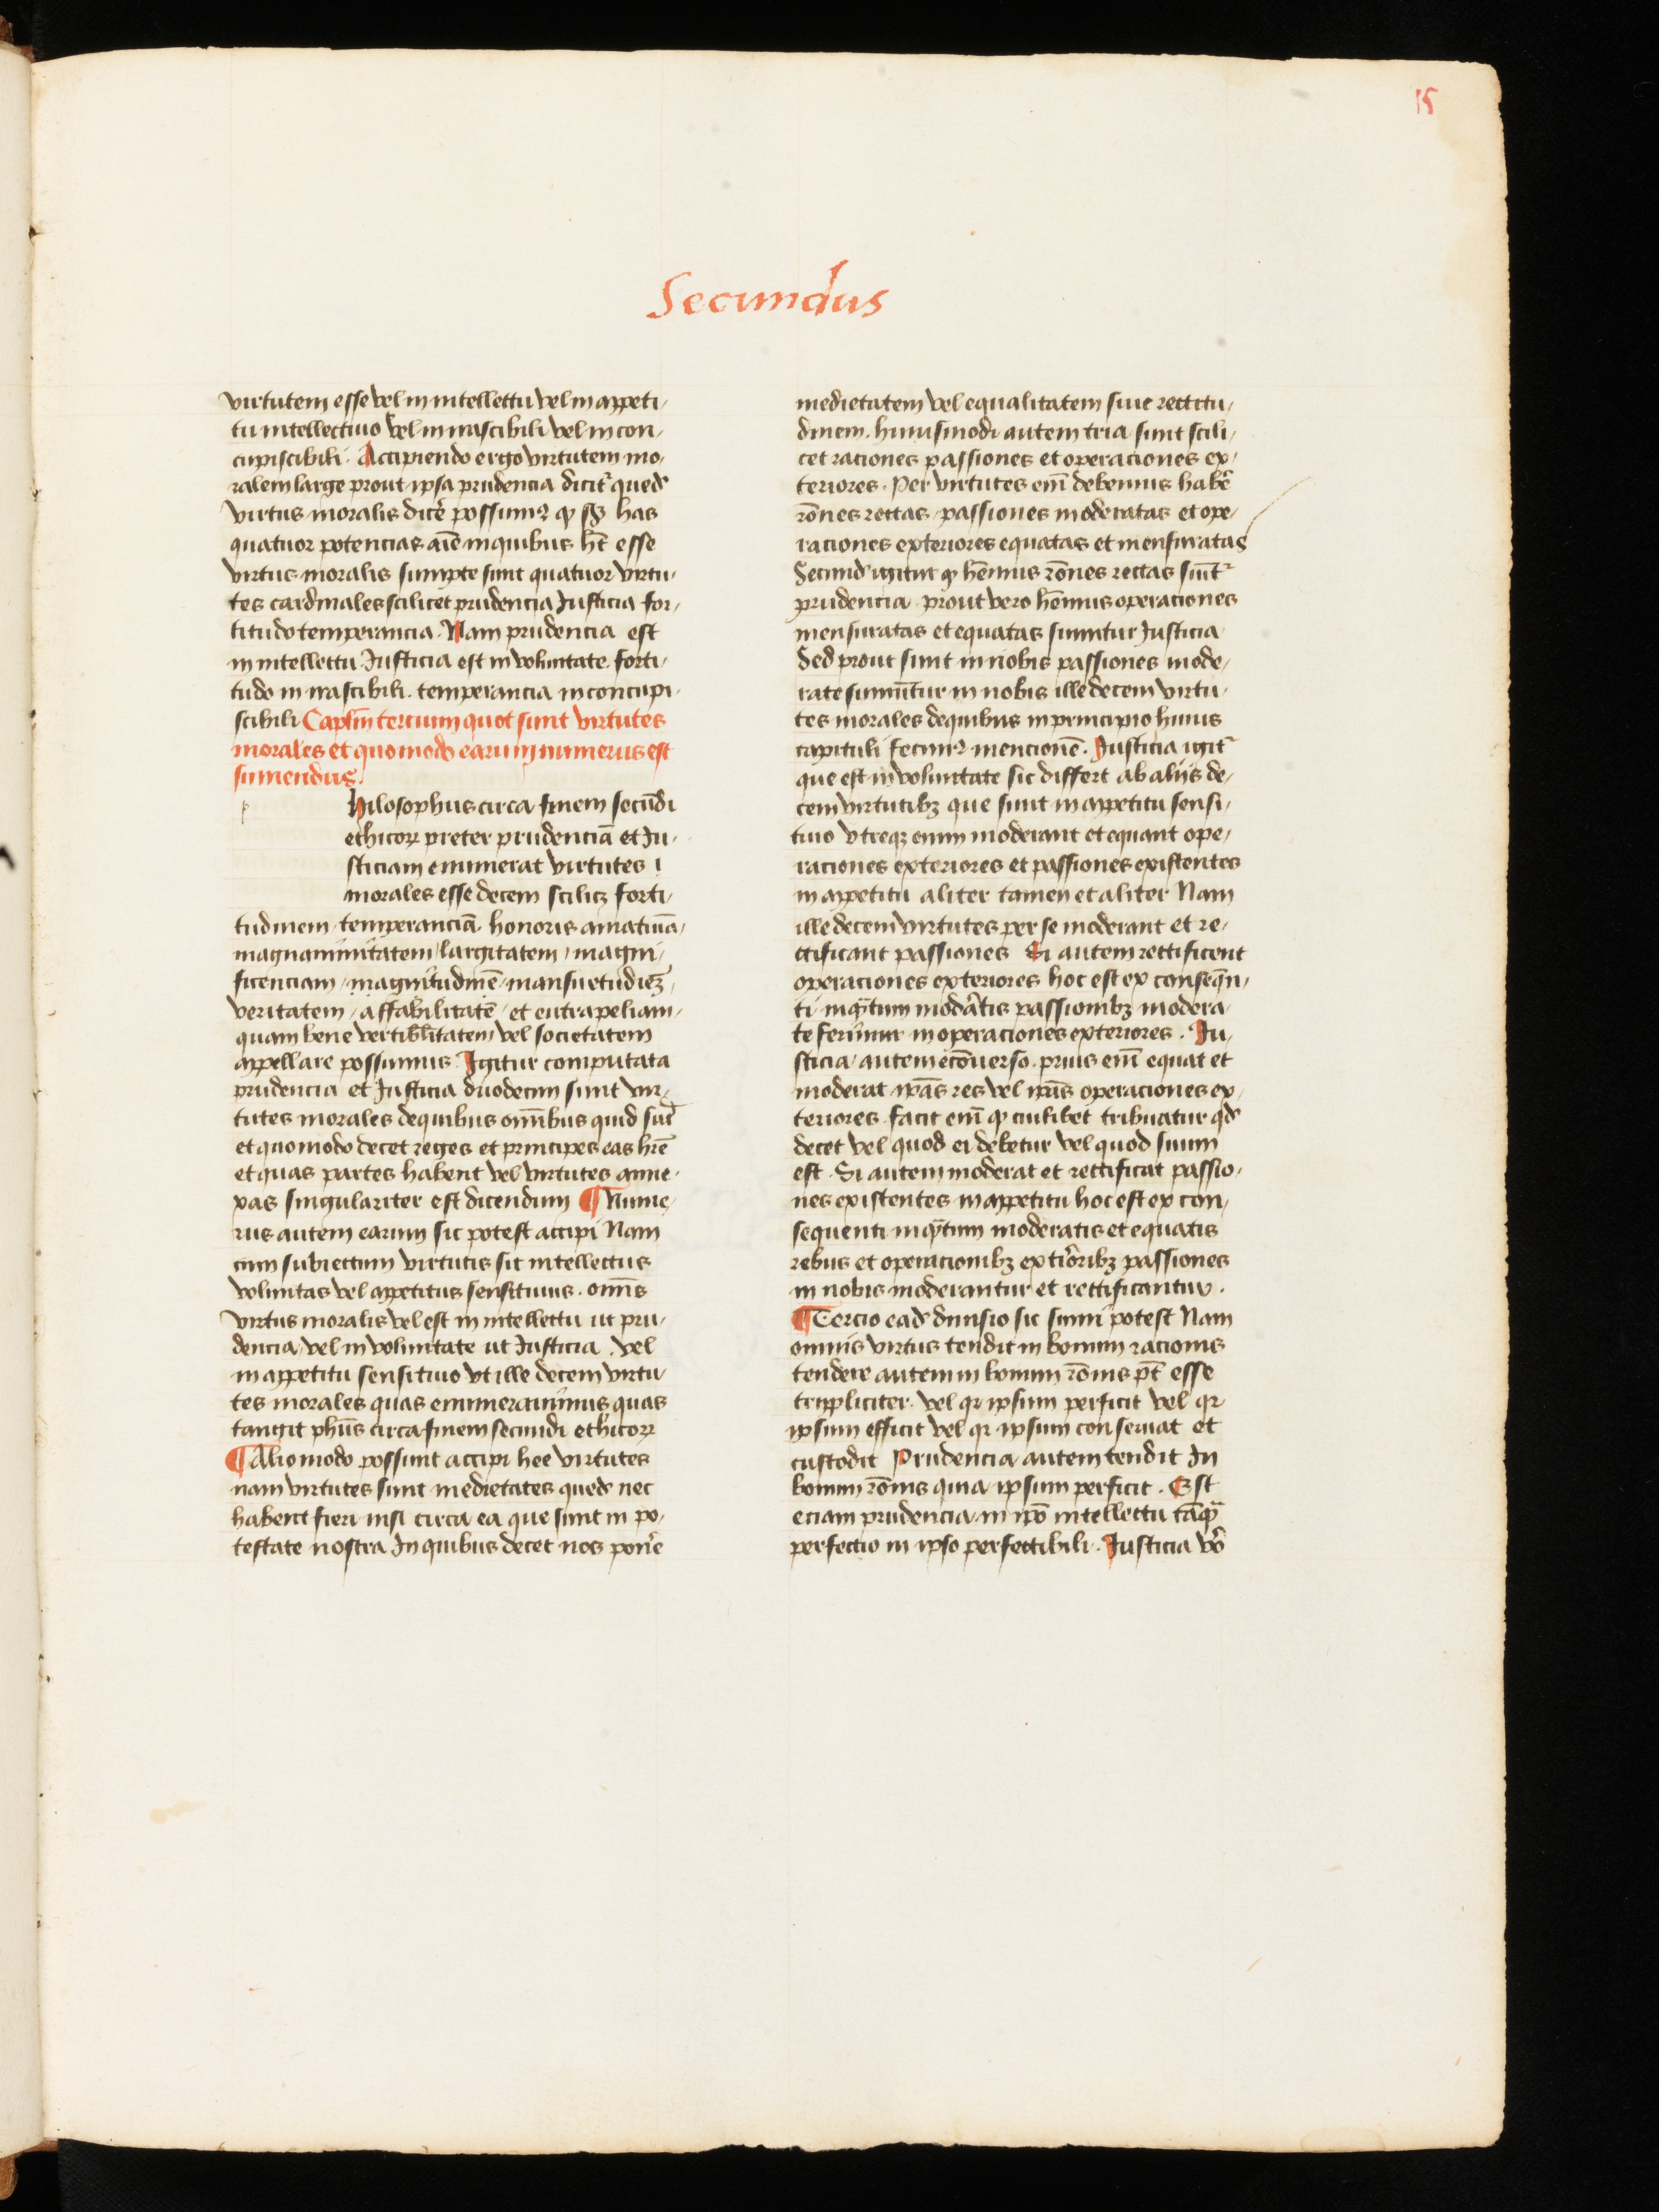 15
Secundus
virtutem esse vel in intellectu vel in appeti-
tu intellectiuo vel in irascibili vel in con-
cupiscibili. Accipiendo ergo virtutem mo-
ralem large prout ipsa prudencia dicitr quedã
virtus moralis dicẽ possumꝰ ꝙ scd̃m has
quatuor potencias aĩe in quibus hꝫt esse
virtus moralis sumpte sunt quatuor virtu-
tes cardinales scilicet prudencia Justicia for-
titudo temperancia. Nam prudencia est
in intellectu Justicia est in voluntate forti-
tudo in irascibili. temperancia in concupi-
scibili Caplm̃ tercium quot sunt virtutes
morales et quomodo earum numerus est
sumendus.
p hilosophus circa finem secũdi
ethicorꝝ preter prudenciã et Ju-
sticiam enumerat virtutes
morales esse decem scilicꝫ forti-
tudinem temperanciã honoris amatiuã
magnanimitatem largitatem magni-
ficenciam magnitudinẽ mansuetudiẽꝫ
veritatem affabilitatẽ et eutrapeliam
quam bene vertiblitatem vel societatem
appellare possumus. Igitur computata
prudencia et Justicia duodecim sunt vir-
tutes morales de quibus om̃ibus quid sũt
et quomodo decet reges et principes eas hr̃e
et quas partes habent vel virtutes anne-
xas singulariter est dicendum ¶ Nume-
rus autem earum sic potest accipi Nam
cum subiectum virtutis sit intellectus
voluntas vel appetitus sensitiuus. om̃is
virtus moralis vel est in intellectu ut pru-
dencia vel in voluntate ut Justicia. vel
in appetitu sensitiuo vt ille decem virtu-
tes morales quas enumerauimus quas
tangit phũs circa finem secundi ethicorꝝ
¶ Alio modo possunt accipi hee virtutes
nam virtutes sunt medietates quedã nec
habent fieri nisi circa ea que sunt in po-
testate nostra In quibus decet nos pon̾e
medietatem vel equalitatem siue rectitu-
dinem. huiusmodi autem tria sunt scili-
cet raciones passiones et operaciones ex-
teriores. Per virtutes em̃ debemus habẽ
rõnes rectas passiones moderatas et ope-
raciones exteriores equatas et mensuratas
Secund̃ igitur ꝙ hẽmus rõnes rectas suĩtr
prudencia prout vero hẽmus operaciones
mensuratas et equatas sumitur Justicia
Sed prout sunt in nobis passiones mode-
rate sumũtur in nobis ille decem virtu-
tes morales de quibus in principio huius
capituli fecimꝰ mencionẽ. Justicia igitr
que est in voluntate sic differt ab alijs de-
cem virtutibꝫ que sunt in appetitu sensi-
tiuo vtreqꝫ enim moderant et equant ope-
raciones exteriores et passiones existentes
in appetitu aliter tamen et aliter Nam
ille decem virtutes per se moderant et re-
ctificant passiones Si autem rectificent
operaciones exteriores hoc est ex conseq̃n-
ti inqᷓtum modãtis passionibꝫ modera-
te ferimur in operaciones exteriores. Ju-
sticia autem ecõuerso. prius em̃ equat et
moderat ip̃as res vel ip̃as operaciones ex-
teriores facit em̃ ꝙ cuilibet tribuatur qd̃
decet vel quod ei debetur vel quod suum
est. Si autem moderat et rectificat passio-
nes existentes in appetitu hoc est ex con-
sequenti inqᷓtum moderatis et equatis
rebus et operacionibꝫ extiõribꝫ passiones
in nobis moderantur et rectificantur.
¶ Tercio ead̃ diuisio sic sumi potest Nam
omnis virtus tendit in bonum racionis
tendere autem in bonum rõnis põt esse
tripliciter. vel qꝛ ipsum perficit vel qꝛ
ipsum efficit vel qꝛ ipsum conseruat et
custodit Prudencia autem tendit In
bonum rõnis quia ipsum perficit. Est
eciam prudencia in ip̃o intellectu tãqᷓ
perfectio in ipso perfectibili. Justicia vo̾